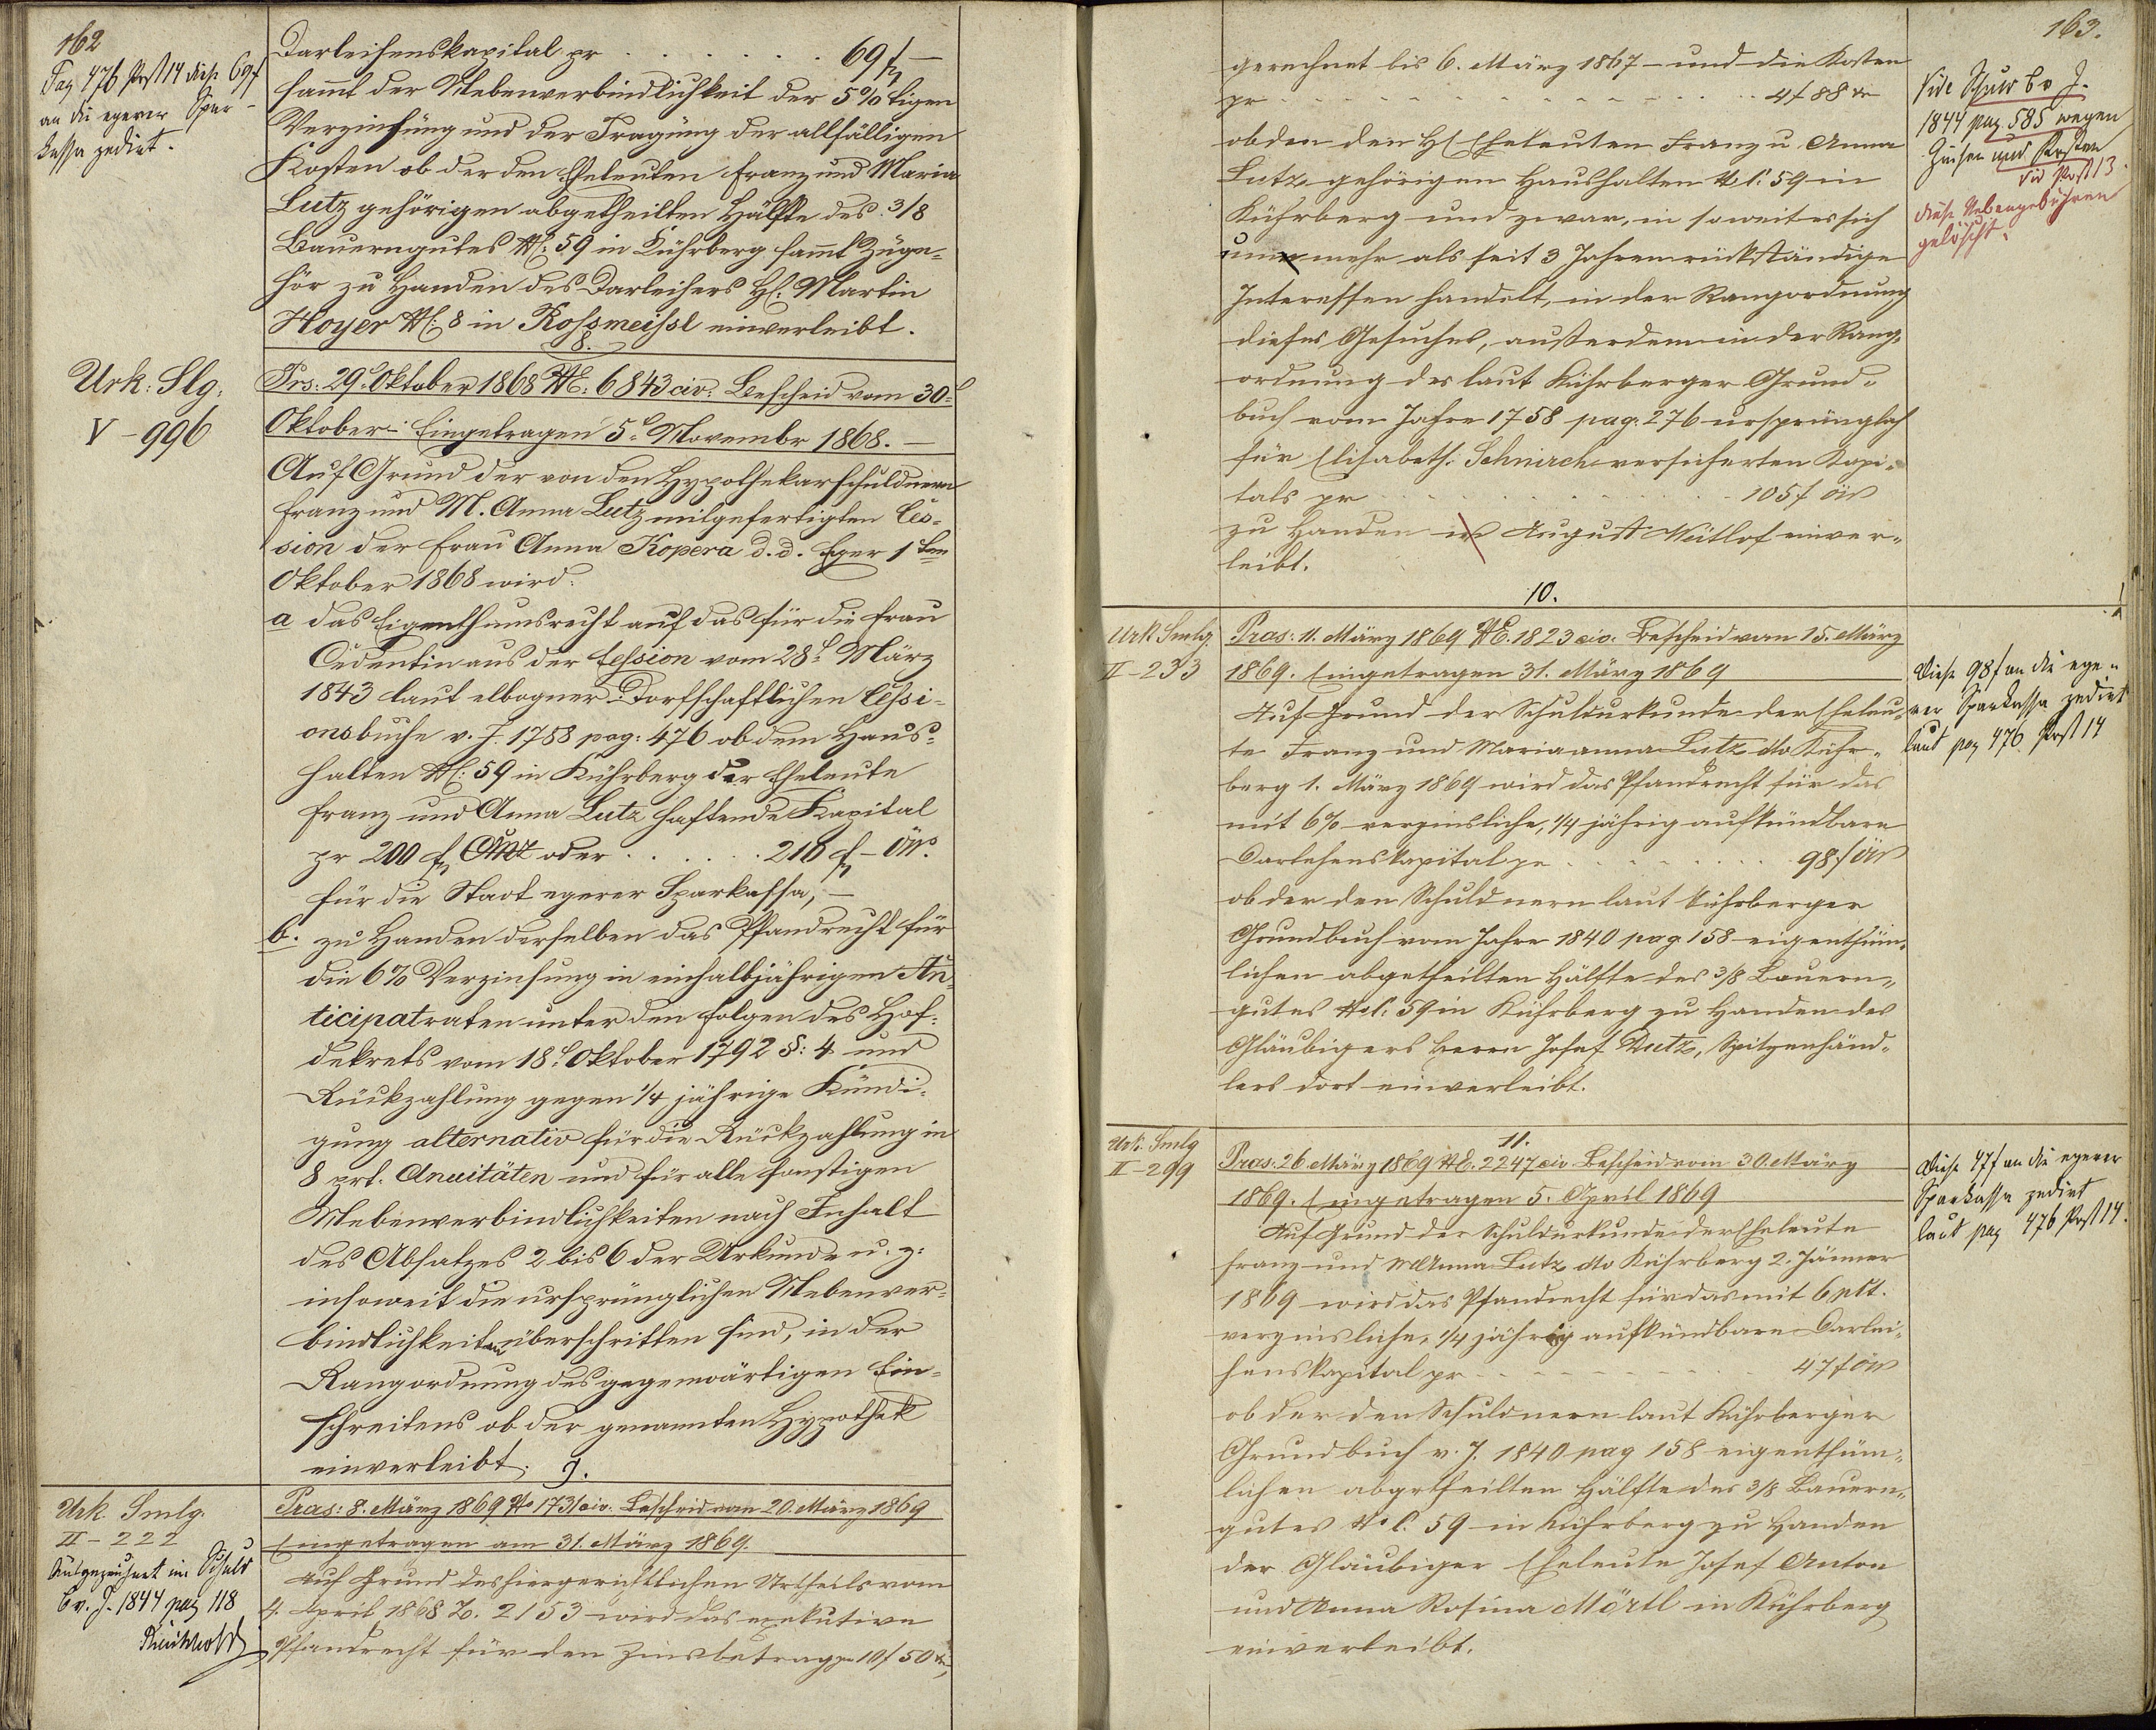 162
Pag 476 Post 14 diese 69 f
an die egerer Spar-
kassa zedirt.
Darleihenskapital pr . . . . . . . 69 f –
sammt der Nebenverbindlichkeit der 5%tigen
Verzinsung und der Tragung der allfälligen
Kosten ob der den Eheleuten Franz und Maria
Lutz gehörigen abgetheilten Hälfte des 3/8
Bauerngutes No: 59 in Kührberg sammt Zuge-
hör zu Handen des Darleihers H: Martin
Hoyer No: 8 in Rossmeissl einverleibt.
8.
Urk: Slg:
V – 996
Prs: 29. Oktober 1868 No: 6843 civ: Bescheid vom 30.
Oktober – Eingetragen 5. November 1868. –
Auf Grund der von den Hypothekarschuldnern
Franz und M. Anna Lutz mitgefertigten Ces-
sion der Frau Anna Kopera d. d. Eger 1ten
Oktober 1868 wird:
a das Eigenthumsrecht auf das für die Frau
Cedentin aus der Cession vom 28. März
1843 laut elbogner Dorfschaftlichen Cessi-
onsbuche v. J. 1758 pag: 476 ob dem Haus-
halten No: 59 in Kührberg der Eheleute
Franz und Anna Lutz haftende Kapital
pr 200 f CMz oder . . . . . . 210 f – öW.
für die Stadt egerer Sparkassa, –
b. zu Handen derselben das Pfandrecht für
die 6% Verzinsung in einhalbjährigen An-
ticipatraten unter den Folgen des Hof-
dekrets vom 18. Oktober 1792 §: 4 und
Rückzahlung gegen 1/4 jährige Kündi-
gung alternativ für die Rückzahlung in
8 prt. Anuitäten und für alle sonstigen
Nebenverbindlichkeiten nach Inhalt
des Absatzes 2 bis 6 der Urkunde u. z:
insoweit die ursprünglichen Nebenver-
bindlichkeiten überschritten sind, in der
Rangordnung des gegenwärtigen Ein-
schreitens ob der genannten Hypothek
einverleibt.
9.
Urk. Smlg.
II – 222
Ausgezeichnet im Schuld
b v. J. 1844 pag 118
Präs: 8. März 1869 No 1731 civ. Bescheid vom 20. März 1869
Eingetragen am 31. März 1869.
Auf Grund des hiergerichtlichen Urtheils vom
4. April 1868 Z. 2153 wird das exekutive
Pfandrecht für den Zinsbetrag pr 10 f 50 kr,
163.
gerechnet bis 6. März 1867 – und die Kosten
pr . . . . . . . . . . . 4 f 88 kr
ob dem den H Eheleuten Franz u Anna
Lutz gehörigen Haushalten No C: 59 in
Kührberg und zwar, in soweit es sich
um mehr als seit 3 Jahren rückständige
Interessen handelt, in der Rangordnung
dieses Gesuches, außerdem in der Rang-
ordnung des laut Kührberger Grund-
buch vom Jahre 1758 pag. 276 ursprünglich
für Elisabeth: Schnirch versicherten Kapi-
tals pr . . . . . . . . . 105 f öW
zu Handen August Mütlof einver-
leibt.
Vide Schuld b v J.
1844 pag. 585 wegen
Zinsen und Kosten
Vid Post 13.
diese Nebengebühren
gelöscht.
10.
Urk Smlg.
II – 233
Präs: 11. März 1869 No E. 1823 civ. Bescheid vom 15. März
1869. Eingetragen 31. März 1869
Auf Grund der Schuldurkunde der Eheleu-
te Franz und Maria anna Lutz dto Kühr-
berg 1. März 1869 wird das Pfandrecht für das
mit 6% verzinsliche, 1/4 jährig aufkündbare
Darlehenskapital pr . . . . . . . . . 98 f öW
ob der den Schuldnern laut Kührberger
Grundbuch vom Jahre 1840 pag 158 eigenthüm-
lichen abgetheilten Hälfte des 3/8 Bauern-
gutes No C: 59 in Kührberg zu Handen des
Gläubigers Herrn Josef Dutz, Spitzenhänd-
lers dort einverleibt.
Diese 98 f an die ege-
rer Sparkassa zedirt
laut pag 476 Post 14
11.
Urk. Smlg
II – 299
Präs: 26. März 1869 No E. 2247 civ. Bescheid vom 30. März
1869. Eingetragen 5. April 1869
Auf Grund der Schuldurkunde der Eheleute
Franz und M Anna Lutz dto Kührberg 2. Jänner
1869 wird das Pfandrecht für das mit 6 pct.
verzinsliche, 1/4 jährig aufkündbare Darlei-
henskapital pr . . . . . . . . . 47 f öW
ob der den Schuldnern laut Kührberger
Grundbuch v. J. 1840 pag 158 eigenthüm-
lichen abgetheilten Hälfte des 3/8 Bauern-
gutes No C. 59 in Kührberg zu Handen
der Gläubiger Eheleute Josef Anton
und Anna Rosina Mörtl in Kührberg
einverleibt.
Diese 47 f an die egerer
Sparkassa zedirt
laut pag 476 Post 14.